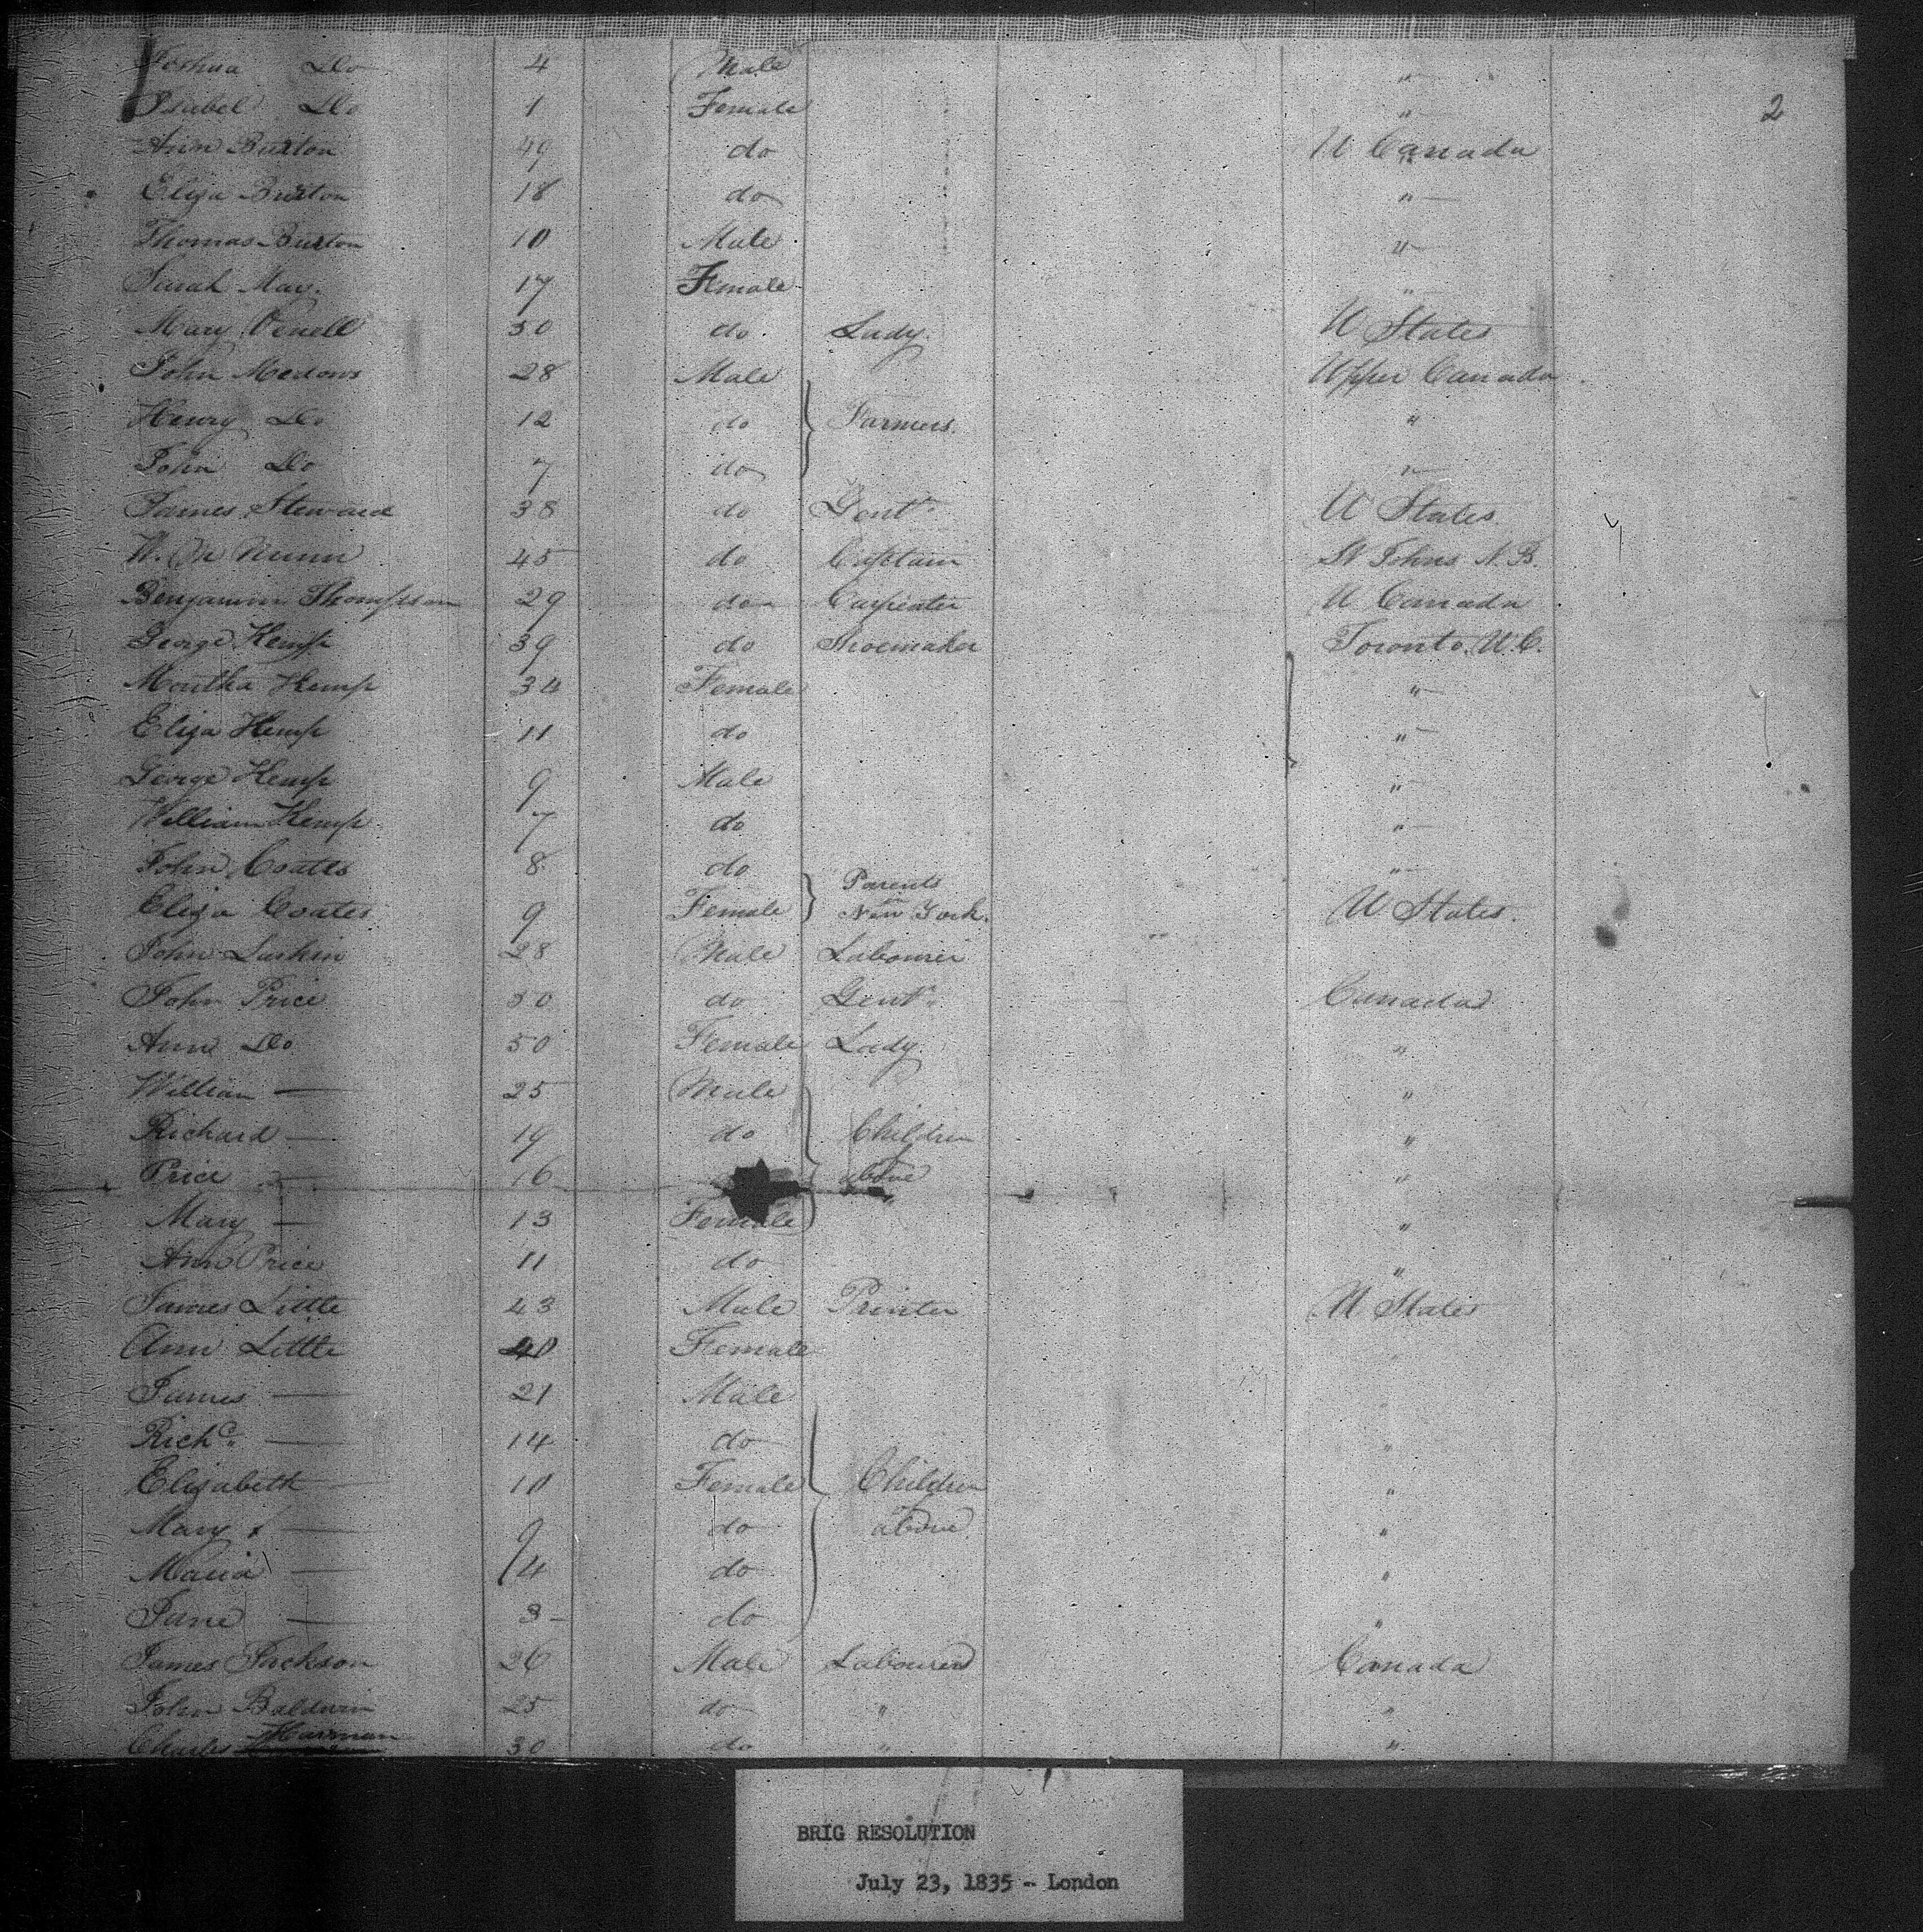 Joshua Do 4 Male "
Isabel Do 1 Female "
2
Ann Buxton 49 do U Canada
Eliza Buxton 18 do "
Thomas Buxton 10 Male "
Sarah May. 17 Female "
Mary 30 do Lady. U States
John Medows 28 Male Upper Canada
Henry Do 12 do Farmers. "
John Do 7 do "
James Steward 38 do Gentn. U States
W. Nunn 45 do Captain St Johns N.B.
Benjamin Thompson 29 do Carpenter U Canada
George Kemp 39 do Shoemaker Toronto. U.C.
Martha Kemp 34 Female "
Eliza Kemp 11 do "
George Kemp 9 Male "
William Kemp 7 do "
John Coates 8 do Parents "
Eliza Coates 9 Female in New York. U States.
John Larkin 28 Male Labourer
John Price 50 do Gentn. Canada
Ann Do 50 Female Lady "
William — 25 Male "
Richard — 19 do Children "
Price — 16 above "
Mary — 13 Female " "
Ann Price 11 do "
James Little 43 Male Printer U States
Ann Little 40 Female
James — 21 Male "
Richd. — 14 do "
Elizabeth — 10 Female Children "
Mary — 9 do above "
Maria — 4 do "
Jane — 3 do "
James Jackson 26 Male Labourer Canada
John Baldwin 25 do " "
Charles Harman 30 do " "
BRIG RESOLUTION
July 23, 1835 - London